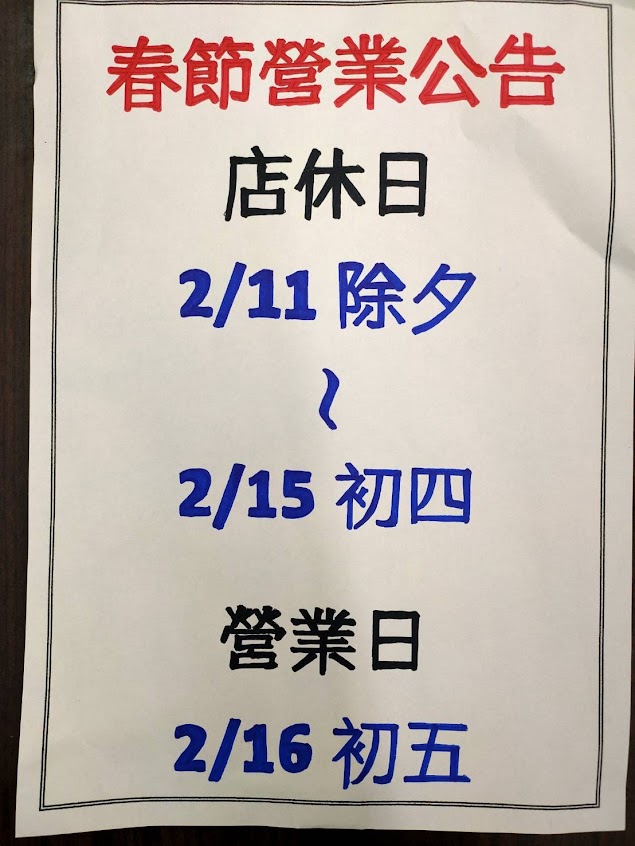 春節營業公告
店休日
2/11 除夕
~
2/15 初四
營業日
2/16 初五